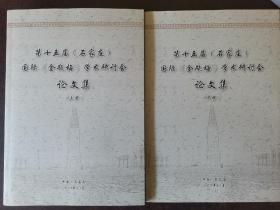 第十五届（石家庄）
国际《金瓶梅》学术研讨会
论文集
（上册）
第十五届（石家庄）
国际《金瓶梅》学术研讨会
论文集